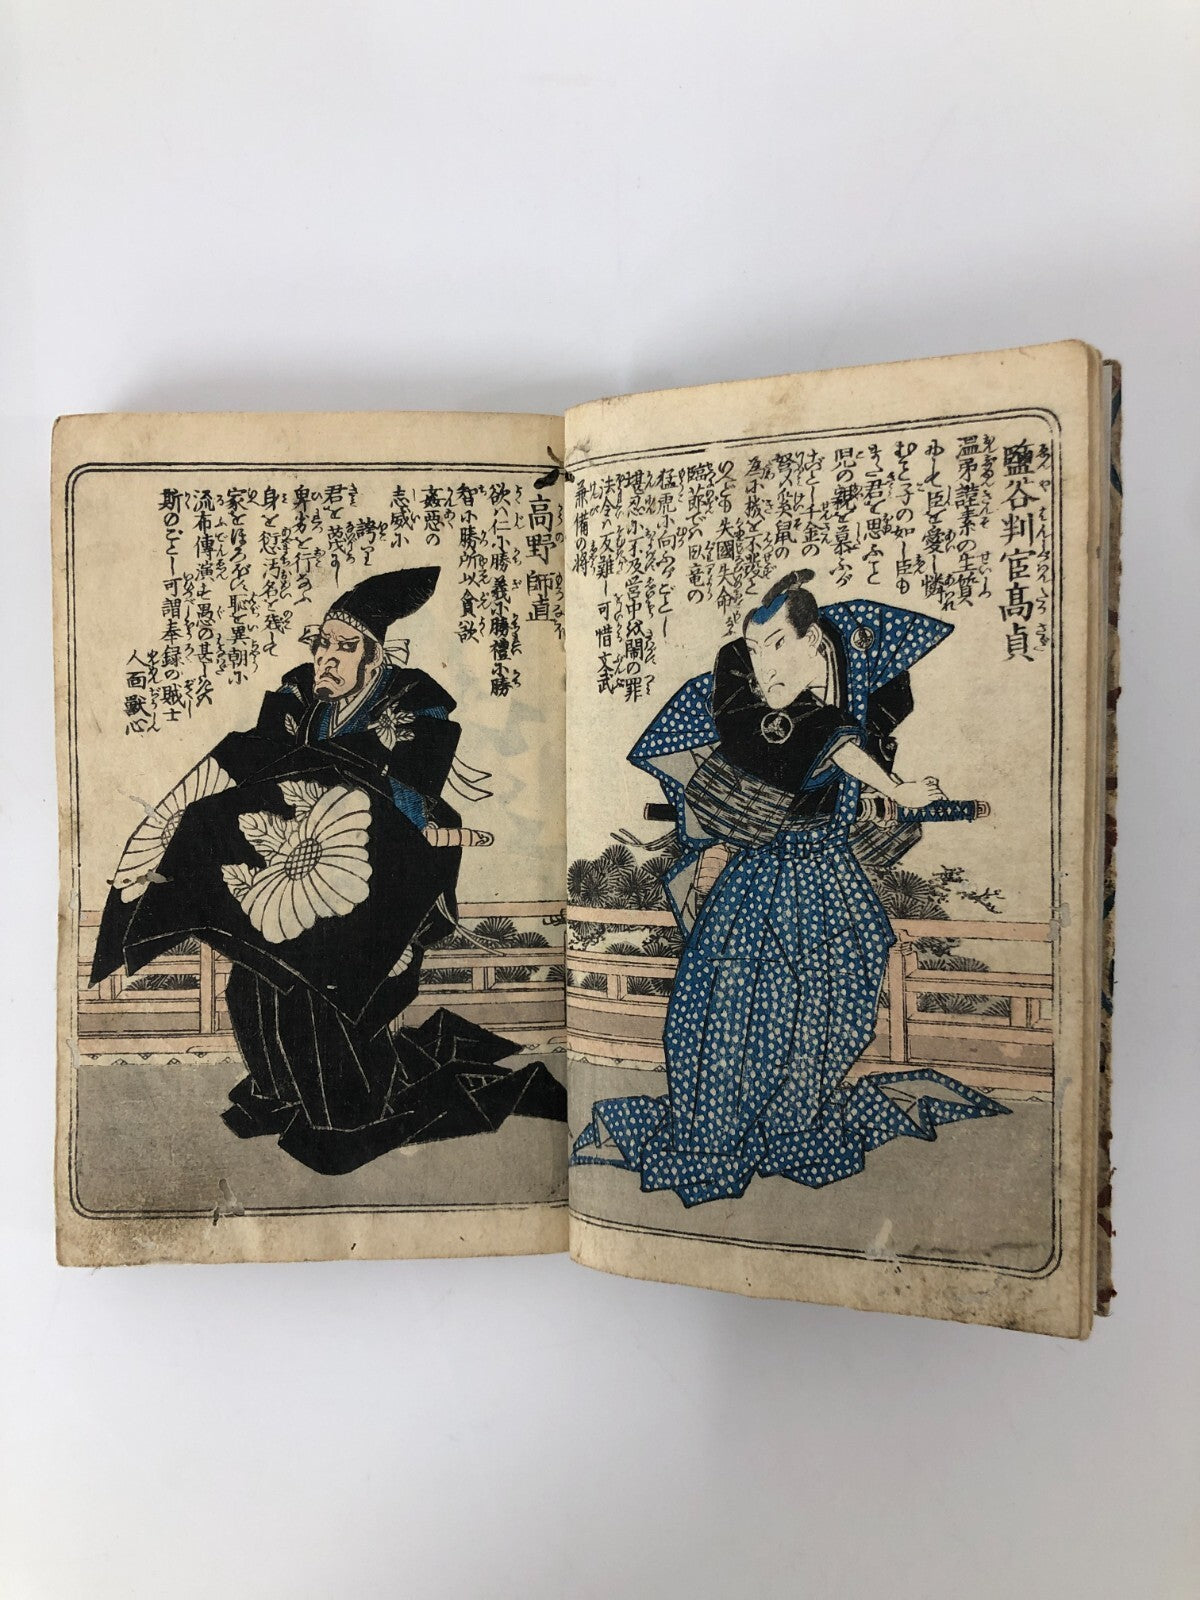 鹽谷判官高貞
温弟謹素の生質
にして臣を愛し憐
むこと子の如し臣も
また君を思ふこと
児の親を慕ふが
ごとし千金の
弩ハ奚鼠の
為に機を不発と
いへども失國失命
臨節でハ臥竜の
猛虎に向ふがごとし
堪忍に不及営中狡閙の罪
法令ハ反難し可惜文武
兼備の将
高野師直
欲ハ仁に勝義に勝禮に勝
智に勝所以貪欲
姦悪の
志威に
誇り
君を蔑し
卑劣を行なふ
身を忘汚名を残して
家をほろぼし恥を異朝に
流布傳演す愚の甚しき
斯のごとし可謂奉録の賊士
人面獣心